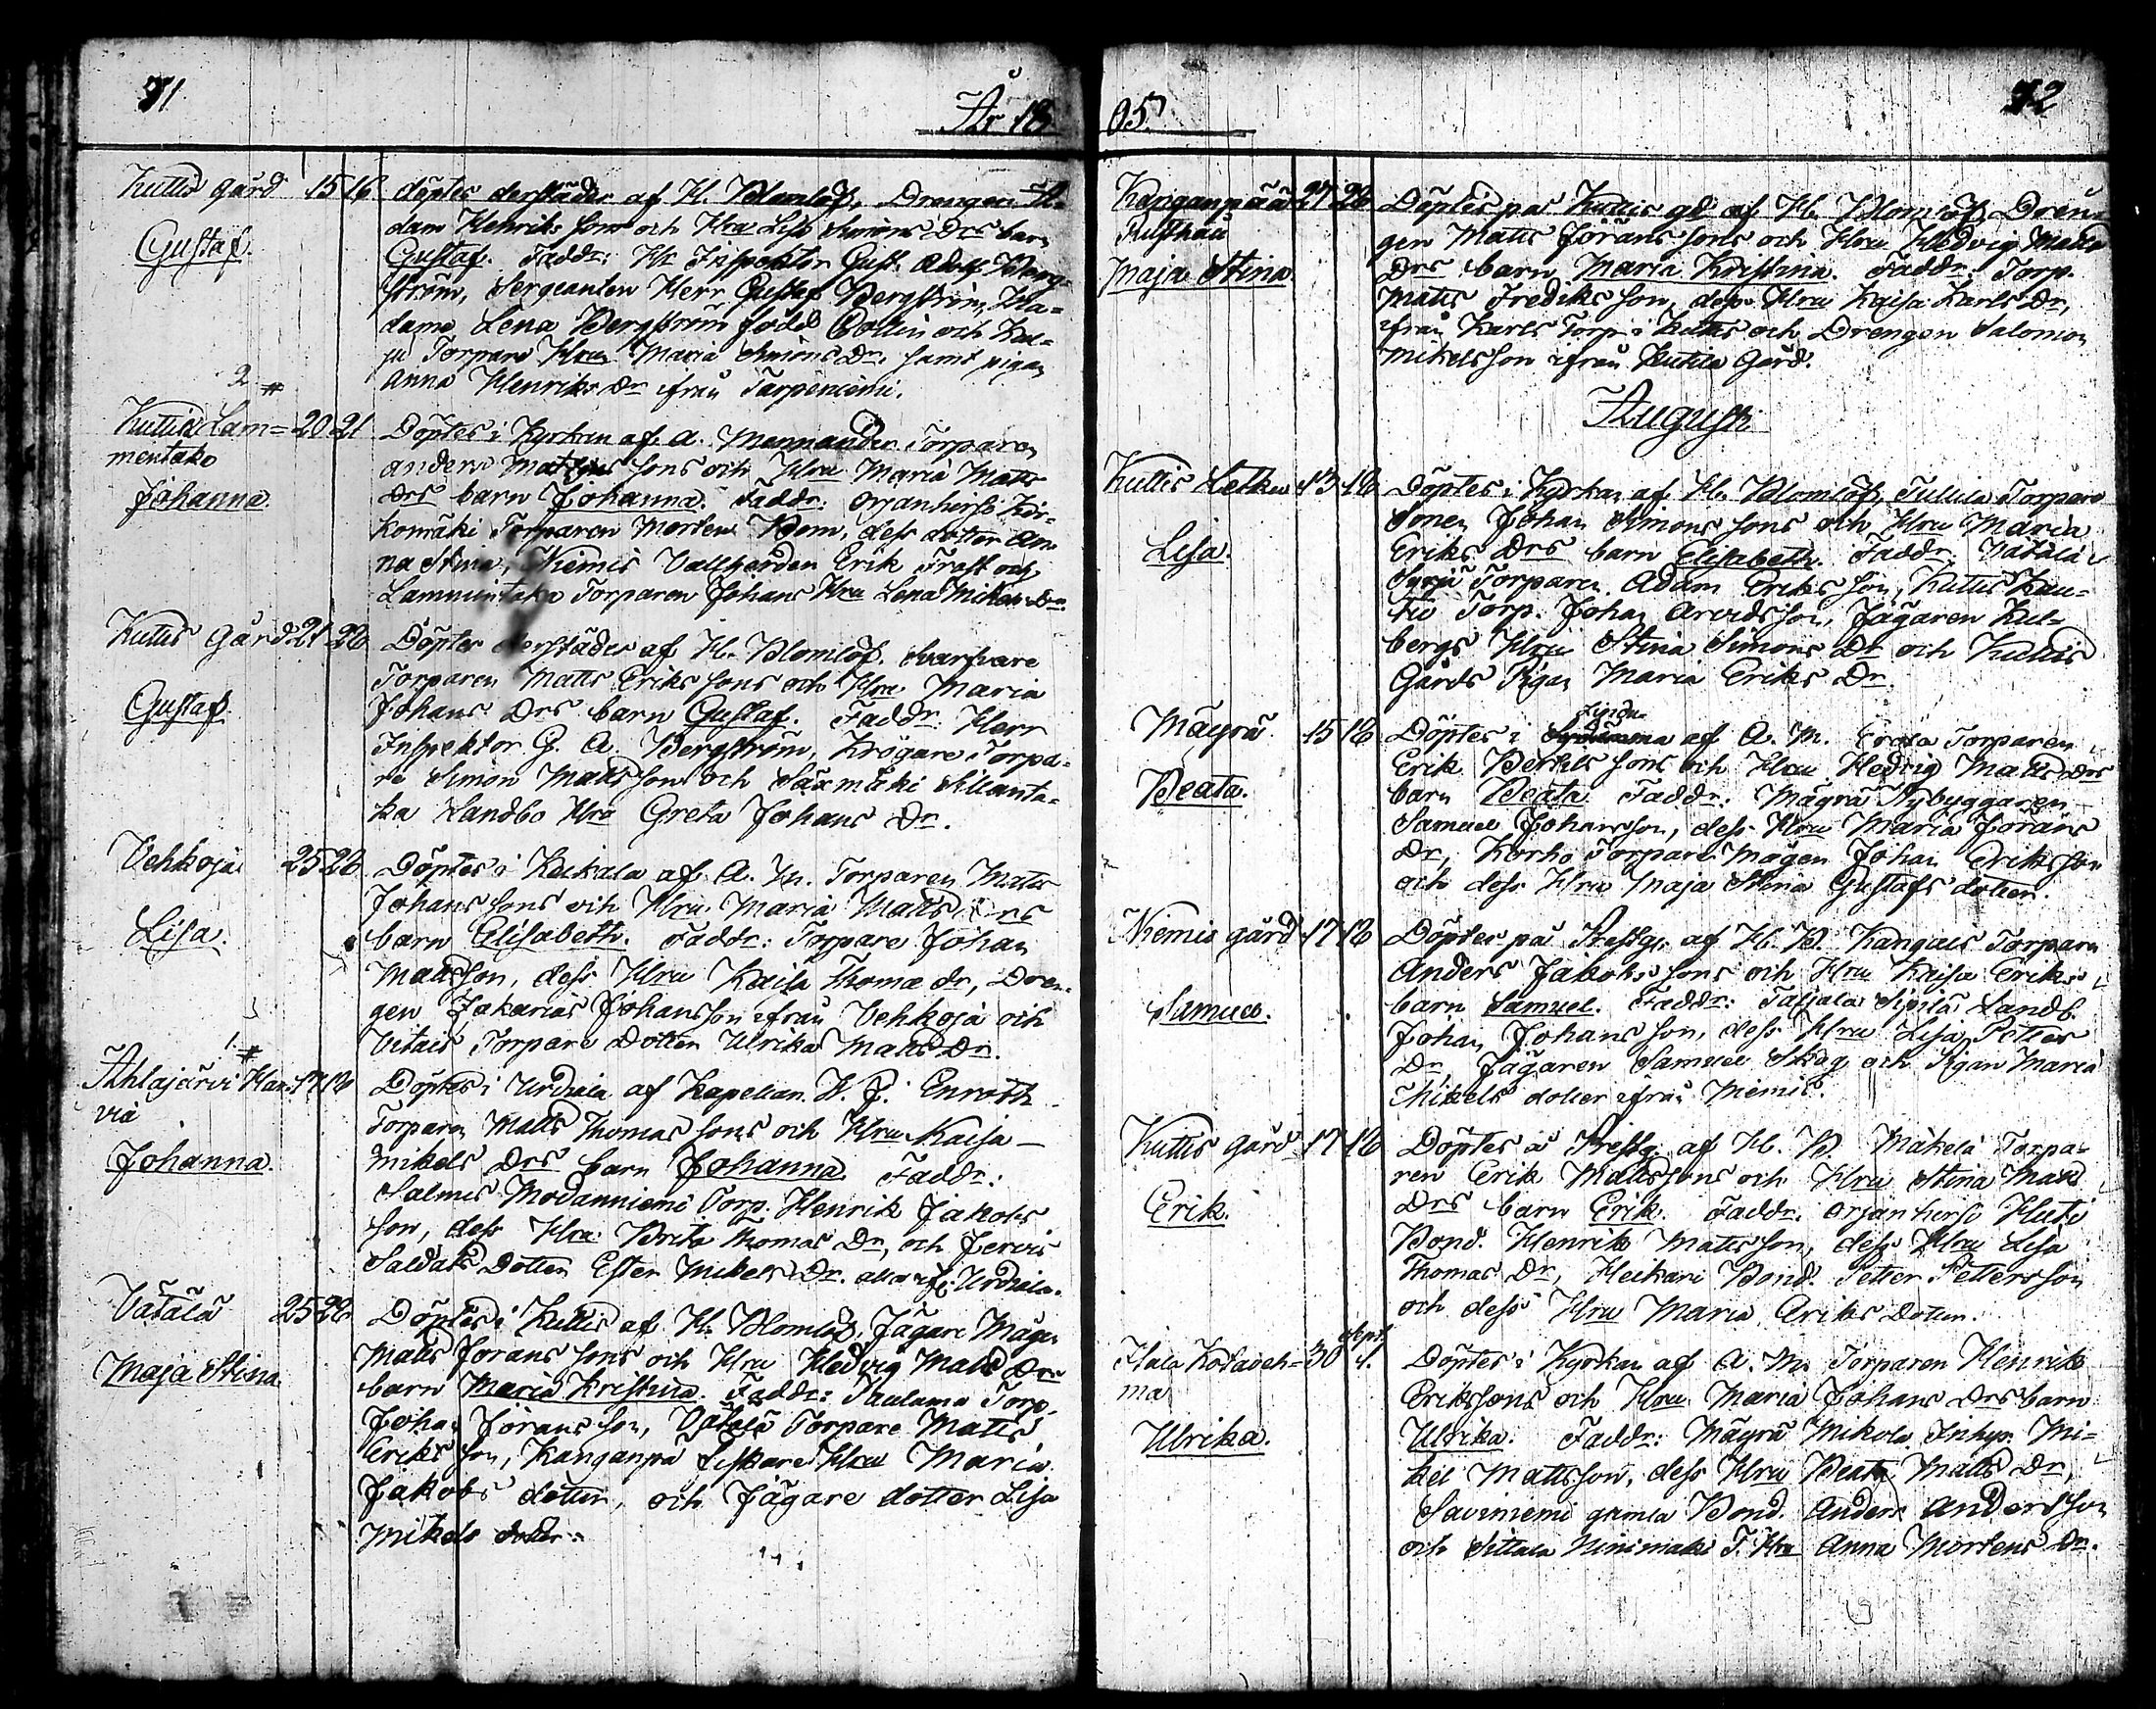 71
År 18
Kuttis gård 15 16 döptes derstädes af H. Blomlöf, Drengen A-
dam Henriks sons och Hru Lisa Simons Drs barn
Gustaf
Gustaf. Faddr: Hr Inspektor Gust. Adolf Berg-
ström, Sergeanten Herr Gustaf Bergström, Ma-
dame Lena Bergström född Bollin och
Torpare Hru Maria Simons Dr. samt pigan
Anna Henriks Dr ifrån Tarpeniemi.
2 #
Kuttis Lam= 20 21 Döptes i Kyrkan af A. Mennander Torparen
mentako
Anders Matts sons och Hru Maria Matts
Johanna.
Drs barn Johanna. Faddr: Orjanhirsi Kor-
komäki Torparen Morten Bom, dess dotter An-
na Stina, Niemis Vallherden Erik Frast och
Lammintaka Torparen Johans Hru Lena Mikels Dr
Kuttis Gård 21 26 Döptes derstädes af H. Blomlöf.
Torparen Matts Eriks sons och Hru Maria
Gustaf
Johans Drs barn Gustaf. Faddr. Herr
Inspektor G. A. Bergström, Krögare Torpa-
re Simon Matts son och Saxmäki
ka Landbo Hru Greta Johans Dr.
Vehkoja 25 26 Döptes i af A. M. Torparen Matts
Johans sons och Hru Maria Matts Drs
Lisa.
barn Elisabeth. Faddr: Torpare Johan
Mattsson, dess Hru Kaisa Thomæ dr, Dren-
gen Zakarias Johansson ifrån Vehkoja och
Torpare Dotter Ulrika Matts Dr.
1. #
Ahlajärvi 17 18 Döptes i Urdiala af Kapellan H. J. Enroth
Torparen Matts Thomas sons och Hru Kaisa
Johanna.
Mikels Drs barn Johanna. Faddr:
Salmis Modanniemi Torp. Henrik Jakobs
son, dess Hru Brita Thomas Dr, och Jervis
Saldats Dotter Ester Mikels Dr. alla ifr. Urdiala.
Vätälä 25 28 Döptes i Kuttis af H. Blomlöf, Jägare Mågen
Matts Jörans sons och Hru Hedvig Matts Drs
Maja Stina
barn Maria Kristina. Faddr: Torp.
Johan Jörans son, Vätälä Torpare Matts
Eriks son, Kanganpä Fiskare Hru Maria
Jakobs dotter, och Jägare dotter Lisa
Mikels dotter.
72
05
Kanganpää 27 28 Döptes på Kuttis gd af H. Blomlöf Dren-
gen Matts Jörans sons och Hru Hedvig Matts
Maja Stina
Drs barn Maria Kristina. Faddr: Torp.
Matts Fredrikson, dess Hru Kaisa Karls Dr,
ifrån Karls Torp i Kuttis och Drengen Salomon
Mikelsson ifrån Kuttis Gård.
Augusti
Kuttis 13 18 Döptes i Kyrkan af H. Blomlöf, Torpare
Sonen Johan Simons sons och Hru Maria
Lisa.
Eriks Drs barn Elisabeth. Faddr. Vätälä
Syrjä Torparen Adam Eriks son, Kuttis
Torp. Johan Arvidsson, Jägaren Kul-
bergs Hru Stina Simons Dr och Kuttis
Gårds Pigan Maria Eriks Dr
Mäyrä 15 18 Döptes i af A. M. Torparen
Erik Bertels sons och Hru Hedvig Matts Drs
Beata.
barn Beata Faddr: Mäyrä Nybyggaren
Samuel Johansson, dess Hru Maria Jörans
Dr, Korho Torpare Mågen Johan Eriksson
och dess Hru Maja Stina Gustafs dotter.
Niemis gård 17 18 Döptes på Prestg. af H. B. Kangais Torparen
Anders Jakobs sons och Hru Kaisa Eriks
Samuel.
barn Samuel. Faddr: Sipilä Landb.
Johan Johans son, dess Hru Lisa Petters
Dr, Jägaren Samuel Skog och Pigan Maria
Mikels dotter ifrån Niemis.
Kuttis Gård 17 18 Döptes i Prestg. af H. B. Mäkelä Torpa-
ren Erik Mattssons och Hru Stina Matts
Erik.
Drs barn Erik. Faddr. Orjanhirsi
Bond. Henrik Mattsson, dess Hru Lisa
Thomas Dr, Heikari Bond. Petter Pettersson
och dess Hru Maria Eriks Dotter.
Sept.
30 1. Döptes i Kyrkan af A. M. Torparen Henrik
ma
Erikssons och Hru Maria Johans Drs barn
Ulrika.
Ulrika. Faddr: Mäyrä Mikola Inhys. Mi-
kel Mattsson, dess Hru Beata Matts Dr,
Saviniemi gamla Bond. Anders Andersson
och Sittala Ninimaki T. Hru Anna Mortens Dr.